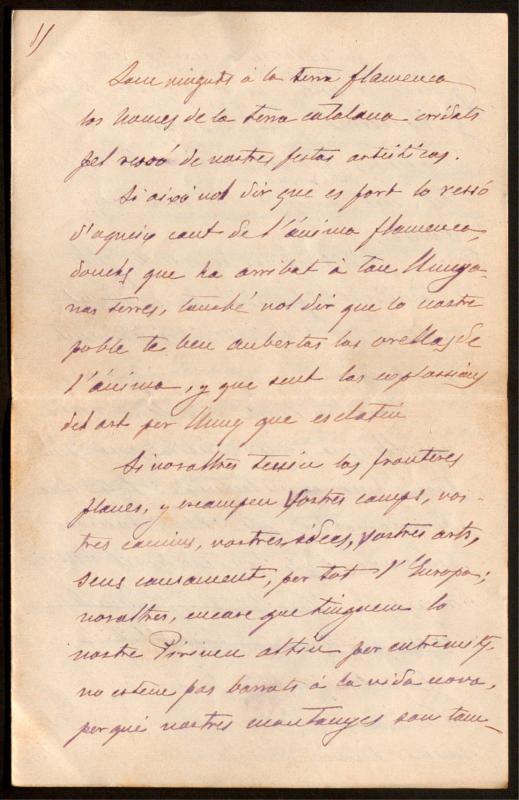 Som vinguts á la terra flamenca
los homes de la terra catalana cridats
pel ressó de vostres festas artísticas.
Si aixó vol dir que es fort lo ressó
d'aqueix cant de l'ánima flamenca,
donchs que ha arribat á tan llunya-
nas terres, també vol dir que lo nostre
poble te ben aubertas las orellas de
l'ánima, y que sent las explossions
del art per lluny que esclatin
Si vosaltres teniu las fronteres
planes, y escampeu vostres camps, vos-
tres camins, vostres idees, vostres arts,
sens cansament, per tot l'Europa;
nosaltres, encare que tinguem lo
nostre Pirineu altiu per entremitj,
no estem pas barrats á la vida nova,
perqué nostres montanyes son tam-